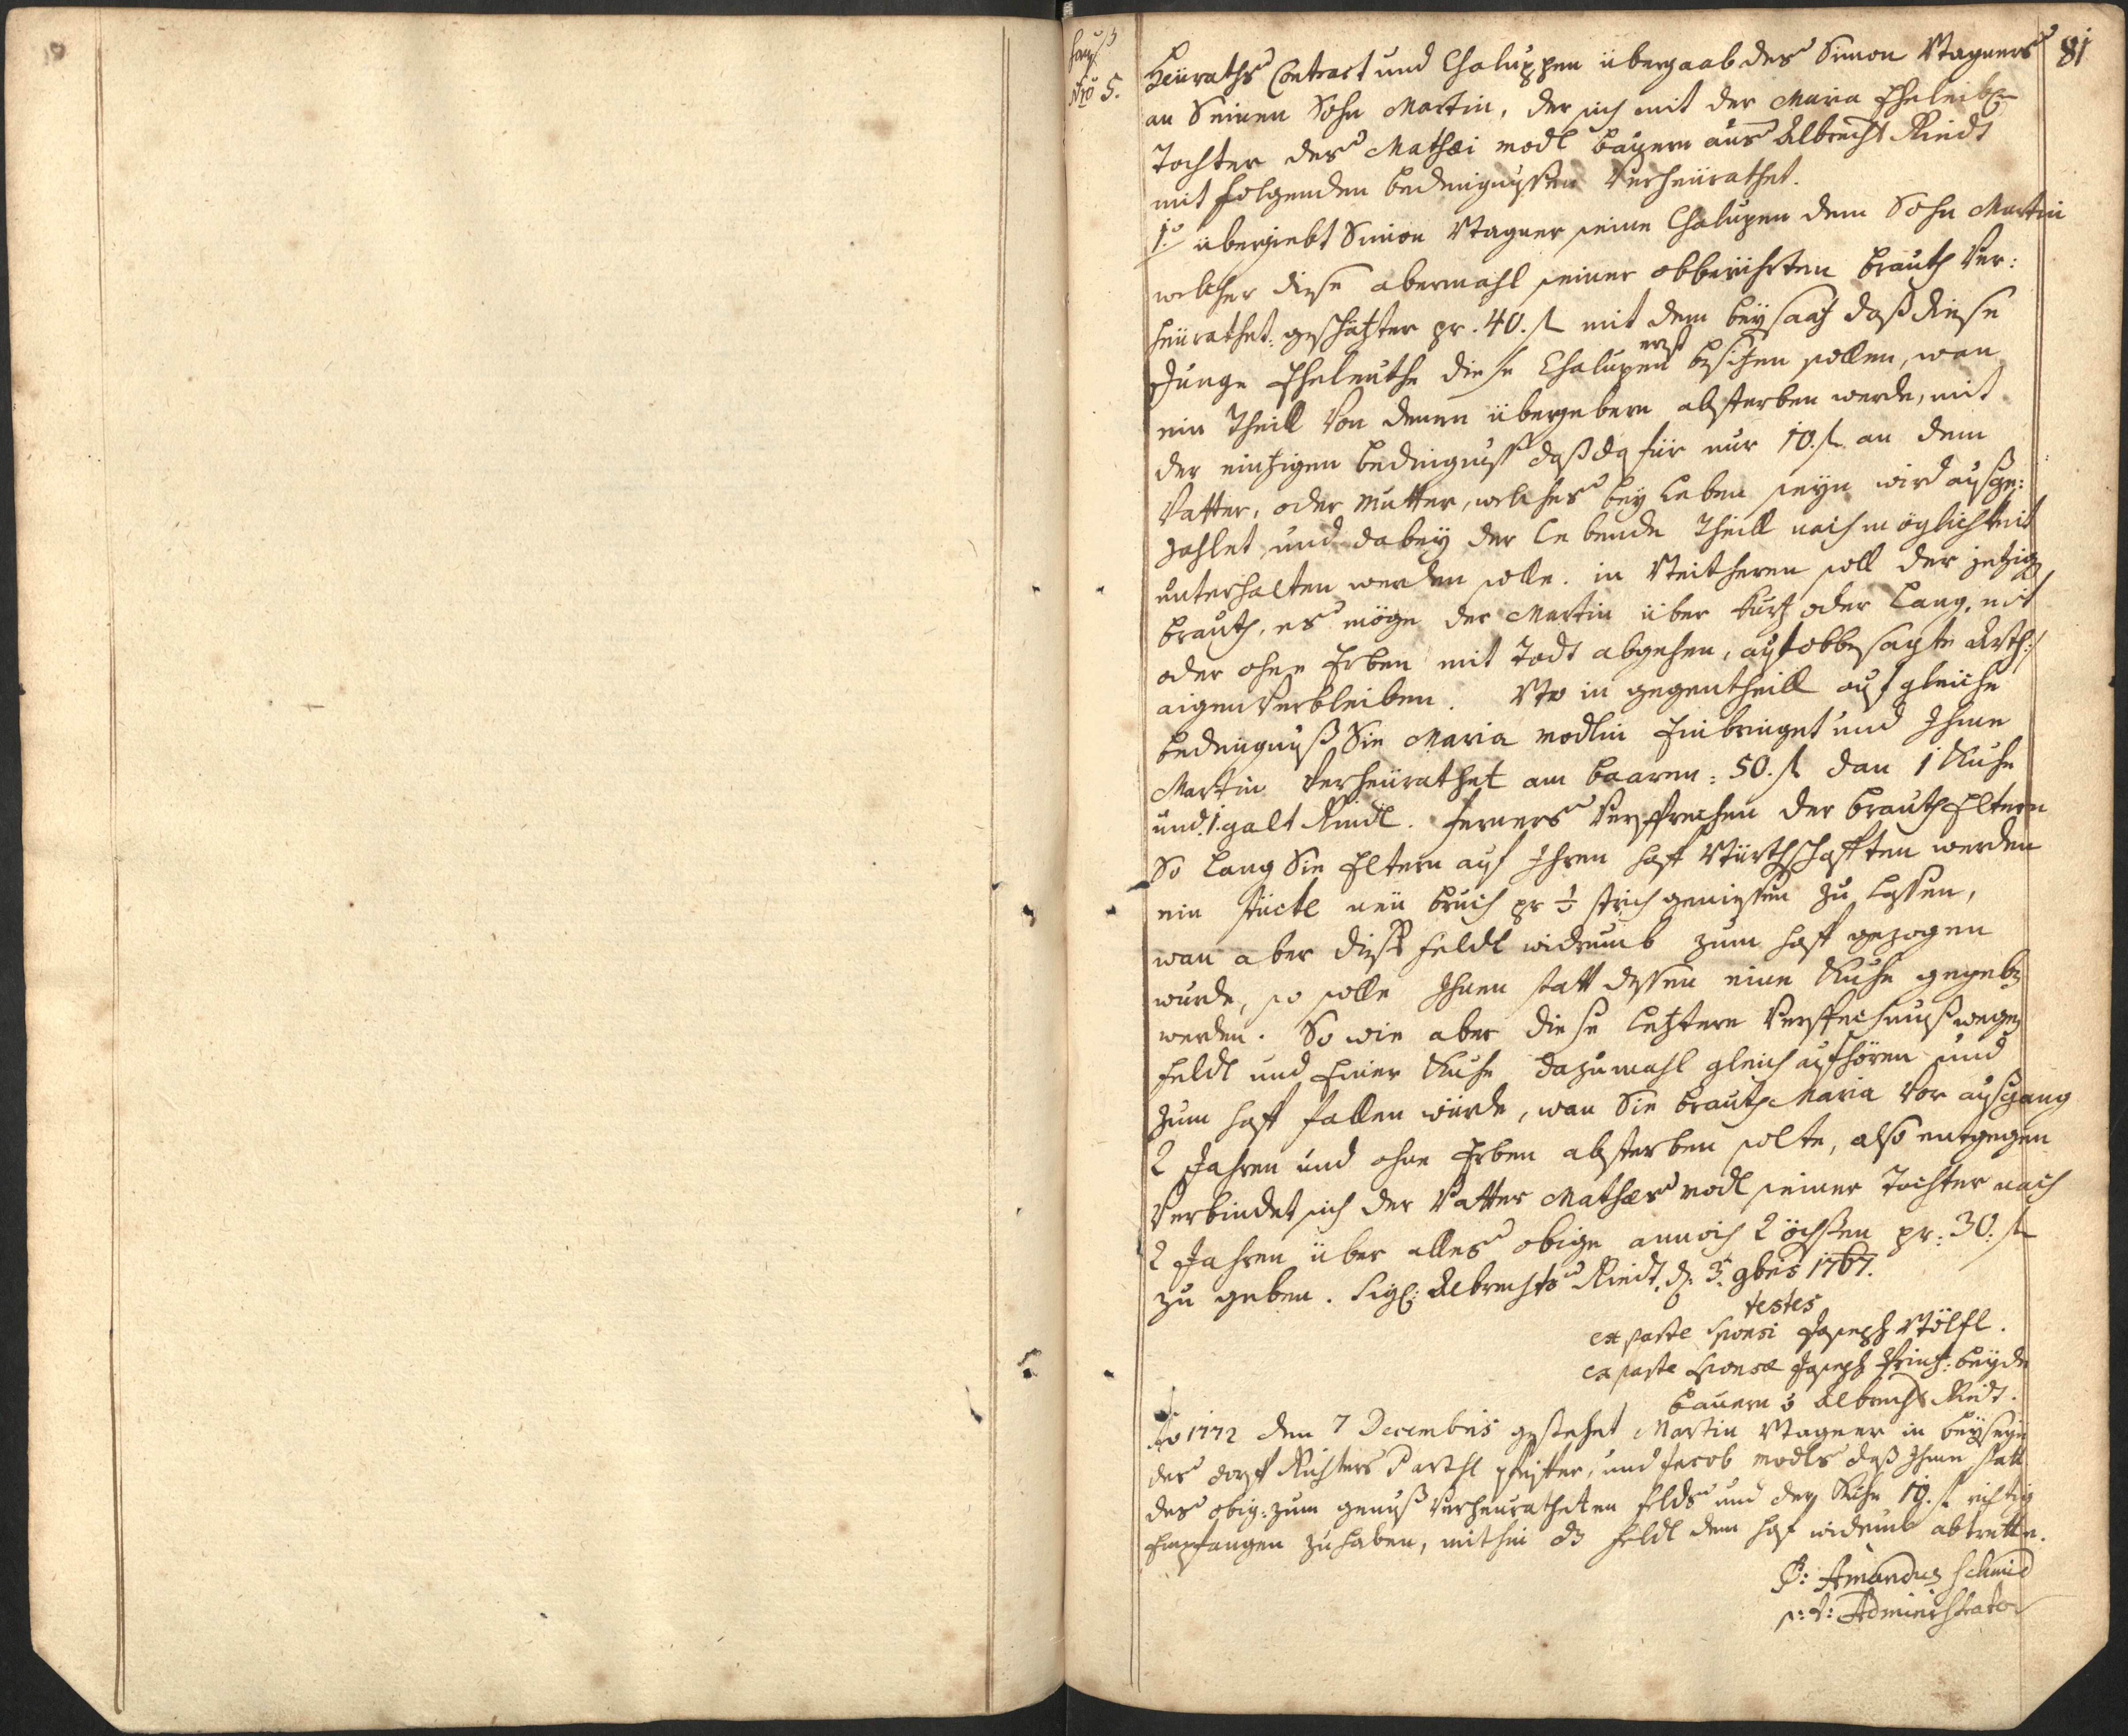 Hauß
Nro 5.
81
Heüraths Contract und Chaluppen übergaab des Simon Wagners
an Seinen Sohn Martin, der sich mit der Maria Eheleibl.
Tochter des Mathæi Modl Bauern aus Albrecht Riedt
mit folgenden bedingnussen Verheürathet.
1o übergiebt Simon Wagner seine Chalupen dem Sohn Martin
welcher diese abermahl seiner obberührten Brauth Ver:
heürathet: geschätzter pr. 40. fl mit dem beysaaz daß diese
Junge Eheleuthe diese Chalupen erst besitzen sollen, wan
ein Theill Von denen übergebern absterben werde, mit
der eintzigen bedingnuß daß dafür nur 10. fl an dem
Vatter, oder Mutter, welches bey Leben seyn wird außge:
zahlet, und dabey der Lebende Theill nach möglichkeit
unterhalten werden solle. in Weitheren soll der jetzig
Brauth, es möge der Martin über kurz oder Lang, mit
oder ohne Erben mit Todt abgehen, auf obbesagte Arth
aigen Verbleiben. Wo in gegentheill auf gleiche
bedingnuß Sie Maria Modlin Einbringet und Ihme
Martin Verheürathet am baaren: 50. fl dan 1 Kuhe
und 1 galt Rindl. ferners Versprechen der Brauth Eltern
So Lang Sie Eltern auf Ihren Hoff Würthschafften werden
ein stückl neü bruch pr ½ strich geniessen zu Lassen,
wan aber dieß feldl widrumb zum Hoff gezogen
wurde, so solle Ihnen statt dessen eine Kuhe gegeben
werden. So wie aber diese Letztere Versprechnuß wegen
feldl und Einer Kuhe dazumahl gleich aufhören und
zum Hoff fallen würde, wan Sie Brauth Maria Vor außgang
2 Jahren und ohne Erben absterben solte, also entgegen
Verbindet sich der Vatter Mathæus Modl seiner Tochter nach
2 Jahren über alles obige annoch 2 öchßen pr: 30. fl
zu geben. Sigl: Albrechts Riedt. d. 3. 9bris 1767.
testes
ex parte sponsi Joseph Wölfl.
ex parte sponsæ Joseph Printz: beyde
Bauern v Albrecht Riedt.
Ao 1772 den 7 Decembris gestehet Martin Wagner in beyseyn
des dorf Richters Barthl Pfeiffer, und Jacob Modls daß Ihme statt
des obig: zum genuß Verheuratheten felds und der Kuhe 10. fl richtig
Empfangen zu haben, mithin dz feldl dem Hof widrumb abtrette.
P: Amandus Schmid
p: t: Administrator